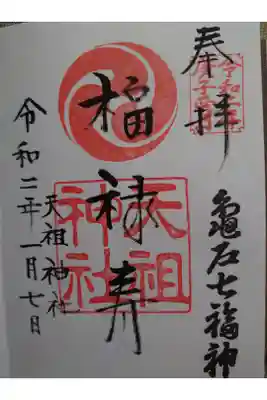 奉拝
龜戸七福神
福禄寿
天祖
神社
天祖神社
令和二年一月七日